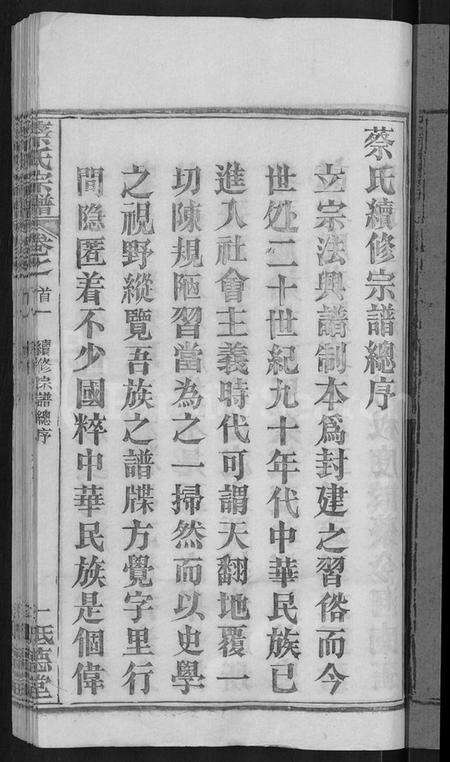 蔡氏續修宗譜總序
立宗法興譜制本爲封建之習俗而今
世处二十世紀九十年代中華民族已
進入社會主義時代可謂天翻地覆一
切陳規陋習當為之一掃然而以史學
之視野縱覽吾族之譜牒方覺字里行
間隐匿着不少國粹中華民族是個偉
蔡氏宗譜
卷之
首一
續修宗譜總序